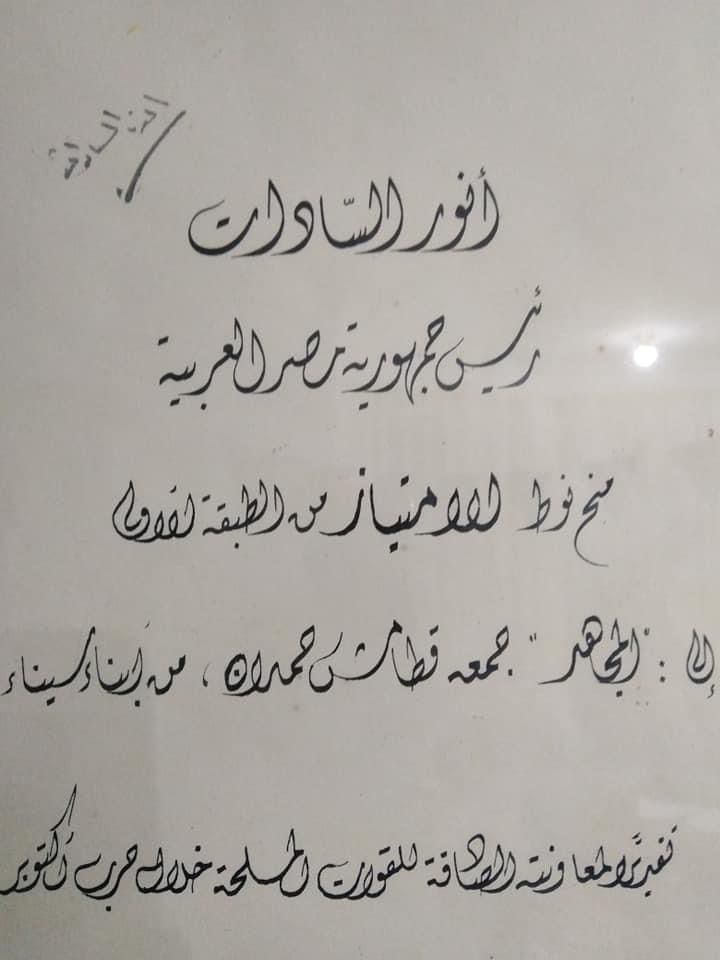 أنور السادات
أنور السّادات
رئيس جمهورية مصر العربية
منح نوط الامتياز من الطبقة الأولى
إلى : "المجاهد" جمعه قطامش حمدان ، من أبناء سيناء
تقديرًا لمعاونته الصادقة للقوات المسلحة خلال حرب أكتوبر